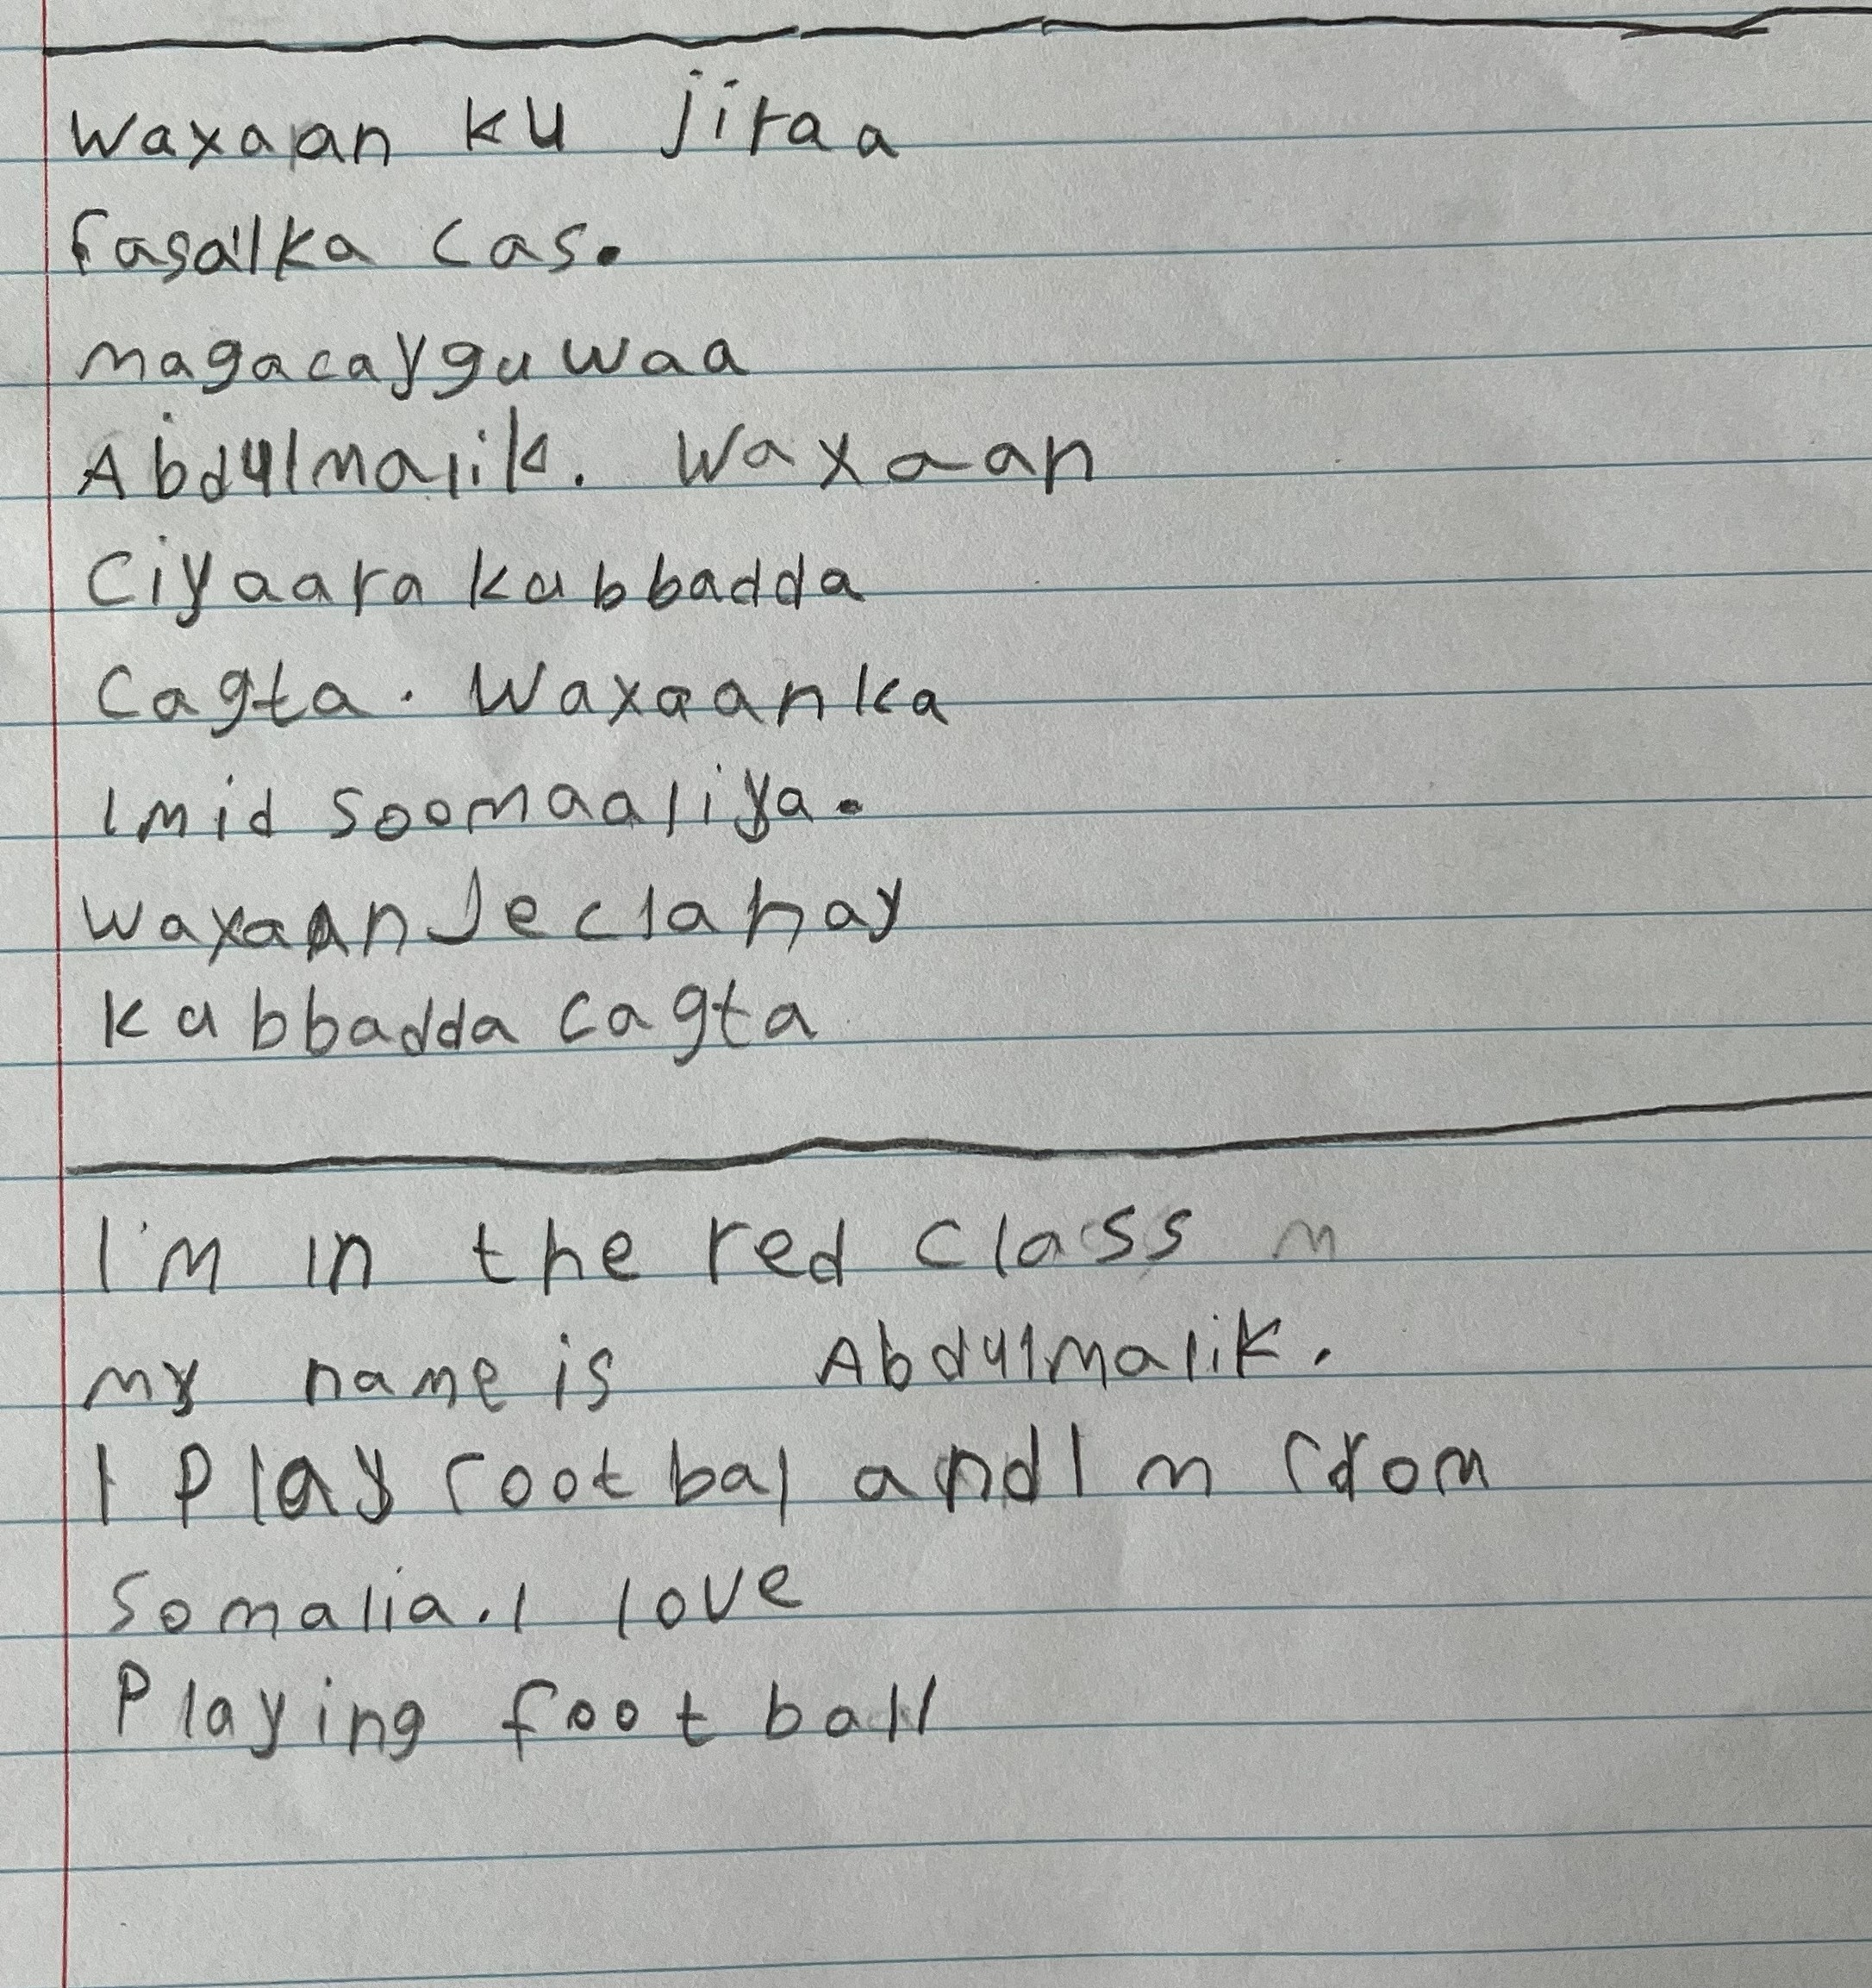 Waxaan ku jiraa
fasalka cas.
magacaygu waa
Abdulmalik. Waxaan
Ciyaara kubbadda
Cagta. Waxaanka
imid Soomaaliya.
Waxaan Jeclahay
kubbadda cagta
I'm in the red class m
my name is Abdulmalik.
I play footbal and I m from
Somalia. I love
Playing foot ball